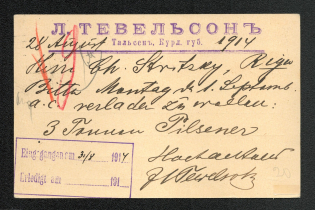 Л. ТЕВЕЛЬСОНЪ
Тальсенъ, Курл. губ.
28 August 1914
Herrn Ch. Stritzky, Riga
Bitte Montag d. 1. Septemb.
a. c. verladen zu wollen:
3 Tonnen Pilsener
Hochachtend
Eingegangen am 31/8 1914
Erledigt am 191